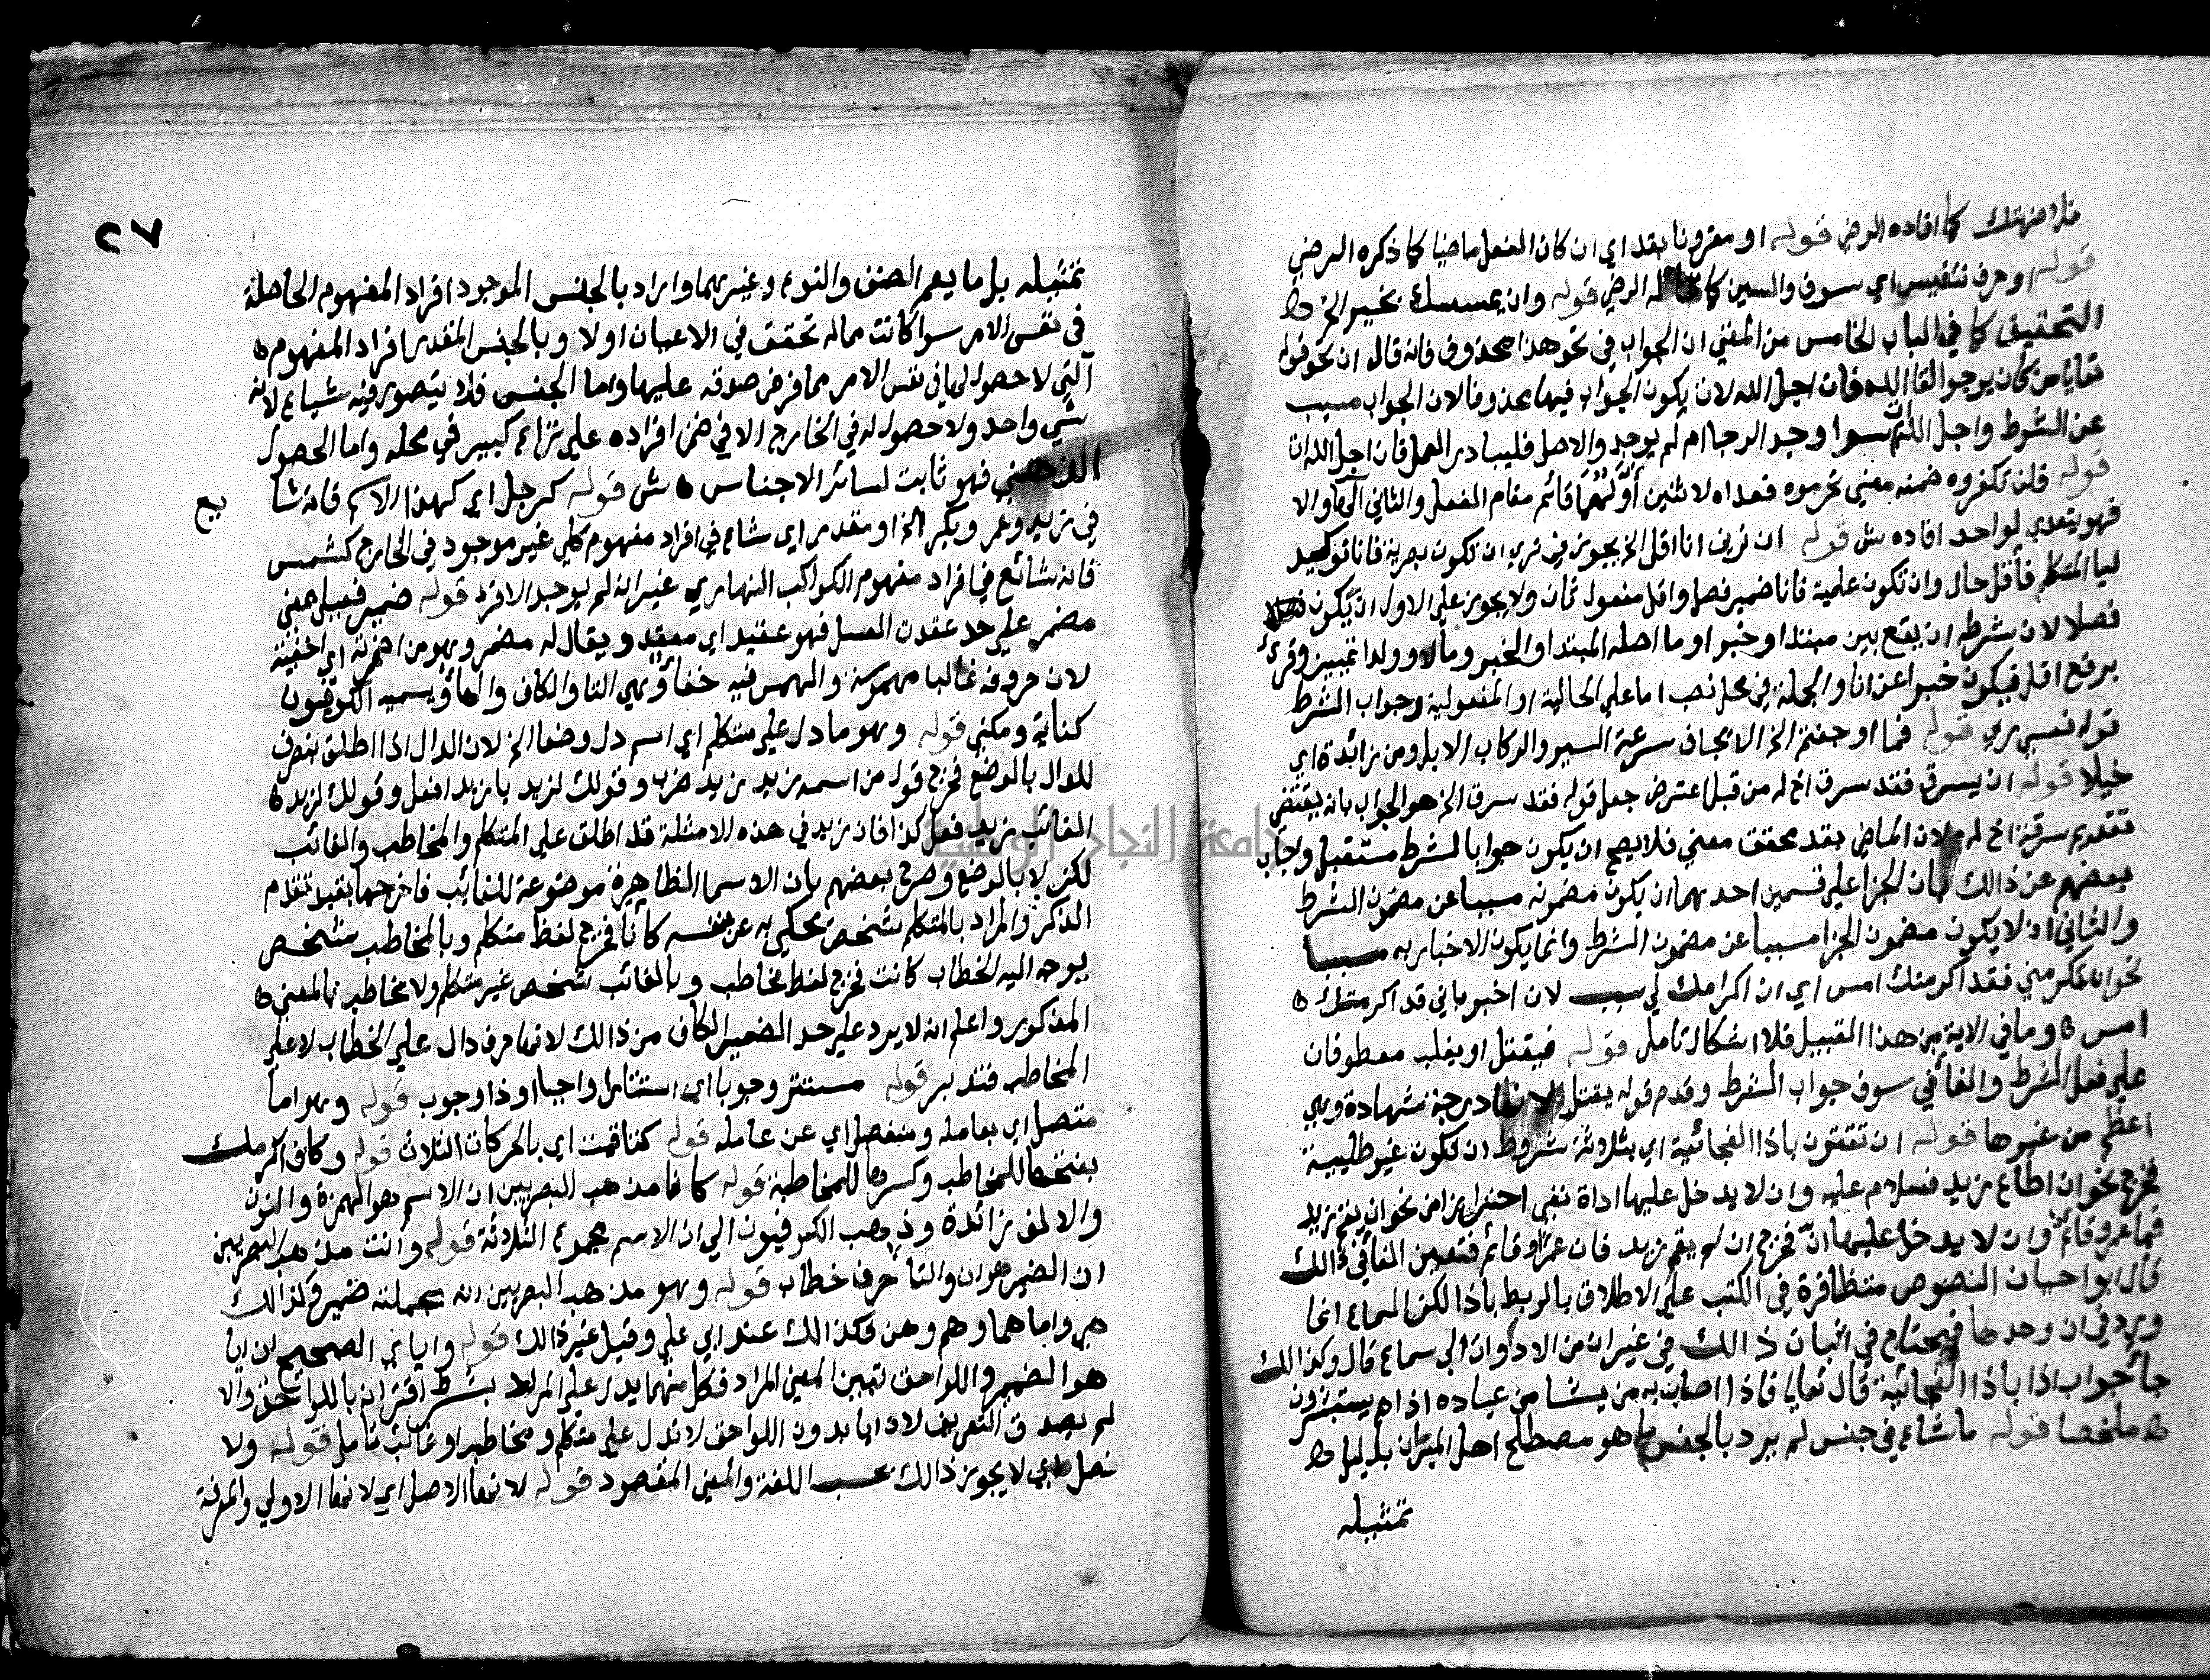 فلاضربتك كما افاده الرضي قوله او مقرونا بقد اي ان كان الفعل ماضيا كما ذكره الرضي
قوله او حرف تنفيس اي سوف والسين كما قاله الرضي قوله وان يمسسك بخير الخ ه
التحقيق كما في الباب الخامس من المغني ان الجواب في نحو هذا محذوف فانه قال ان نحو قوله
تعالى من كان يرجو لقاء الله فان اجل الله لات يكون الجواب فيها محذوفا لان الجواب مسبب
عن الشرط واجل الله آت سوا وجد الرجا ام لم يوجد والاصل فليبادر العمل فان اجل الله ات
قوله فلن تكفروه ضمنه معني تحرموه فعداه لاثنين اولهما قائم مقام الفاعل والثاني الهاء والا
فهو يتعدي لواحد افاده ش قوله ان ترن انا اقل الخ يجوز في تري ان تكون بصرية فانا توكيد
ليا المتكلم فاقل حال وان تكون علمية فانا ضمير فصل واقل مفعول ثان ولا يجوز علي الاول ان يكون
فصلا لان شرطه ان يقع بين مبتدا وخبر او ما اصله المبتدا والخبر ومالا وولدا تمييز وقرئ
برفع اقل فيكون خبرا عن انا والجملة في محل نصب اما علي الحالية او المفعولية وجواب الشرط
قوله فعسي ربي قوله فما اوجفتم الخ الايجاف سرعة السير والركاب الابل ومن زائدة اي
خيلا قوله ان يسرق فقد سرق اخ له من قبل اعترض جعل قوله فقد سرق الخ هو الجواب بانه يقتضي
تقديم سرقة اخ له ولان الماضي بقد محقق معني فلا يصح ان يكون جوابا لشرط مستقبل واجاب
بعضهم عن ذالك بان الجزا علي قسمين احدهما ان يكون مضمونه مسببا عن مضمون الشرط
والثاني ان لا يكون مضمون الجزا مسببا عن مضمون الشرط وانما يكون الاخبار به مسببا
نحو ان تكرمني فقد اكرمتك امس اي ان اكرامك لي سبب لان اخبر باني قد اكرمتك ه
امس ه وما في الاية من هذا القبيل فلا اشكال تامل قوله فيقتل او يغلب معطوفان
علي فعل الشرط والفا في سوف جواب الشرط وقدم قوله يقتل لانها درجة شهادة وهي
اعظم من غيرها قوله ان تقترن باذا الفجائية اي بثلاثة شروط ان تكون غير طلبية
فخرج نحو ان اطاع زيد فسلام عليه وان لا يدخل عليها اداة نفي احترازا من نحو ان يقم زيد
فما عمرو قائم وان لا يدخل عليها ان فخرج ان لم يقم زيد فان عمرا قائم فتتعين الفا في ذالك
قال ابو احيان النصوص متظافرة في الكتب علي الاطلاق بالربط باذا لكن السماع انما
ورد في ان وحدها فيحتاج في اثبات ذالك في غير ان من الادوات الي سماع قال وكذالك
جا جواب اذا باذا الفجائية قال تعالي فاذا اصاب به من يشا من عباده اذا هم يستبشرون
ه ملخصا قوله ما شاع في جنس لم يرد بالجنس ما هو مصطلح اهل الميزان بدليل ه
تمثيله
٢٧
تمثيله بل ما يعم الصنف والنوع وغيرهما واراد بالجنس الموجود افراد المفهوم الحاصلة
في نفس الامر سوا كانت مما له تحقق في الاعيان او لا وبالجنس المقدر افراد المفهوم ه
التي لا حصول لها في نفس الامر مما فرض صدقه عليها واما الجنس فلا يتصور فيه شياع لانه
شي واحد ولا حصول له في الخارج الا في ضمن افراده علي نزاع كبير في محله واما الحصول
الذهني فهو ثابت لسائر الاجناس ه ش قوله كرجل اي كهذا الاسم فانه شا
يع
في زيد وعمر وبكر الخ او مقدر اي شاع في افراد مفهوم كلي غير موجود في الخارج كشمس
فانه شائع في افراد مفهوم الكواكب النهاري غير انه لم يوجد الا فرد قوله ضمير فعيل بمعني
مضمر علي حد عقدت العسل فهو عقيد اي معقد ويقال له مضمر وهو من اضمرته اي اخفيته
لان حروفه غالبا مهموسة والهمس فيه خفاؤ وهي التا والكاف والهاؤ ويسميه الكوفيون
كناية ومكني قوله وهو ما دل علي متكلم اي اسم دل وضعا الخ لان الدال اذا اطلق انصرف
للدال بالوضع فخرج قول من اسمه زيد زيد ضرب وقولك لزيد يا زيد افعل وقولك لزيد ه
الغائب زيد فعل كذا فان زيد في هذه الامثلة قد اطلق علي المتكلم والمخاطب والغائب
لكن لا بالوضع وصرح بعضهم بان الاسما الظاهرة موضوعة للغائب فاخرجها بقيد تقدم
الذكر والمراد بالمتكلم شخص يحكي به عن نفسه كانا فخرج لفظ متكلم وبالمخاطب شخص
يوجه اليه الخطاب كانت فخرج لفظ مخاطب وبالغائب شخص غير متكلم ولا مخاطب بالمعني ه
المذكور واعلم انه لا يرد علي حد الضمير الكاف من ذالك لانها حرف دال علي الخطاب لا علي
المخاطب فتدبر قوله مستتر وجوبا اي استتارا واجبا او ذا وجوب قوله وهو اما
متصل اي بعامله ومنفصل اي عن عامله قوله كتا قمت اي بالحركات الثلاث قوله وكاف اكرمك
بفتحها للمخاطب وكسرها للمخاطبة قوله كانا مذهب البصريين ان الاسم هو الهمزة والنون
والالف زائدة وذهب الكوفيون الي ان الاسم مجموع الثلاثة قوله وانت مذهب البصريين
ان الضمير هو ان والتا حرف خطاب قوله وهو مذهب البصريين انه بجملته ضمير وكذالك
هي واما هما وهم وهن فكذالك عند ابي علي وقيل غير ذالك قوله واياي الصحيح ان ايا
هو الضمير واللواحق تبين المعني المراد فكل منهما يدل علي المراد بشرط اقترانه باللواحق والا
لم يصدق التعريف لان ايا بدون اللواحق لا تدل علي متكلم ومخاطب او غائب تامل قوله ولا
فصل اي لا يجوز ذالك بحسب اللغة والمعني المقصود قوله لانها الاصل اي لانها الاولي والمعرفة
جامعة النجاح الوطنية